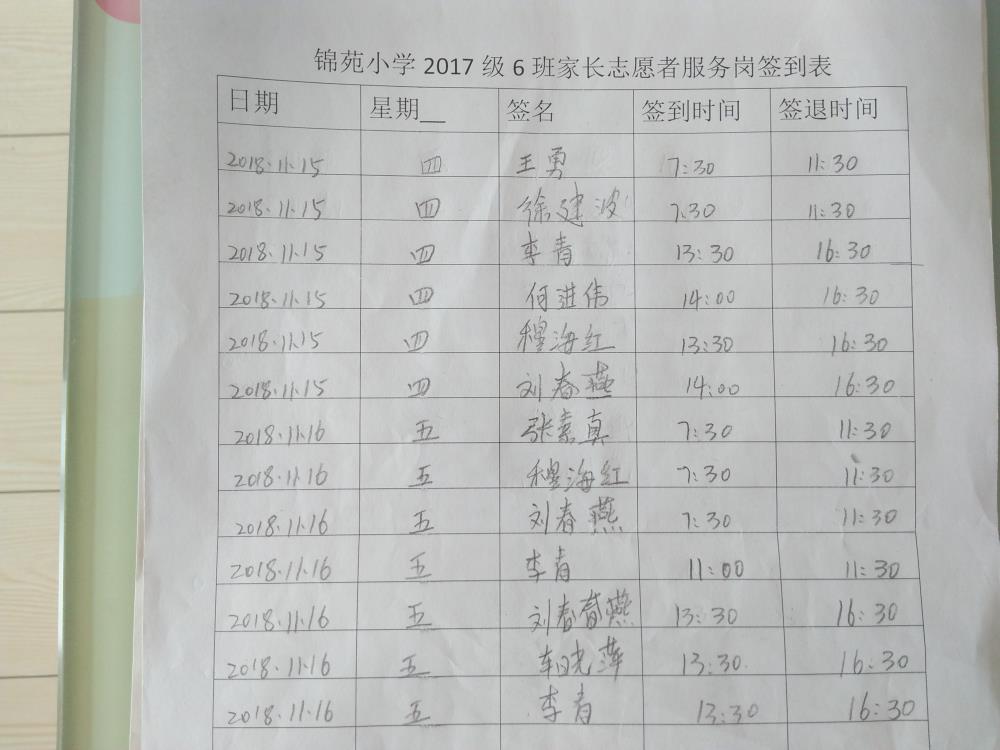 锦苑小学 2017 级 6 班家长志愿者服务岗签到表
日期 星期__ 签名 签到时间 签退时间
2018.11.15 四 王勇 7:30 11:30
2018.11.15 四 徐建波 7:30 11:30
2018.11.15 四 李青 13:30 16:30
2018.11.15 四 何进伟 14:00 16:30
2018.11.15 四 穆海红 13:30 16:30
2018.11.15 四 刘春燕 14:00 16:30
2018.11.16 五 张素真 7:30 11:30
2018.11.16 五 穆海红 7:30 11:30
2018.11.16 五 刘春燕 7:30 11:30
2018.11.16 五 李青 11:00 11:30
2018.11.16 五 刘春燕 13:30 16:30
2018.11.16 五 车晓萍 13:30 16:30
2018.11.16 五 李青 13:30 16:30